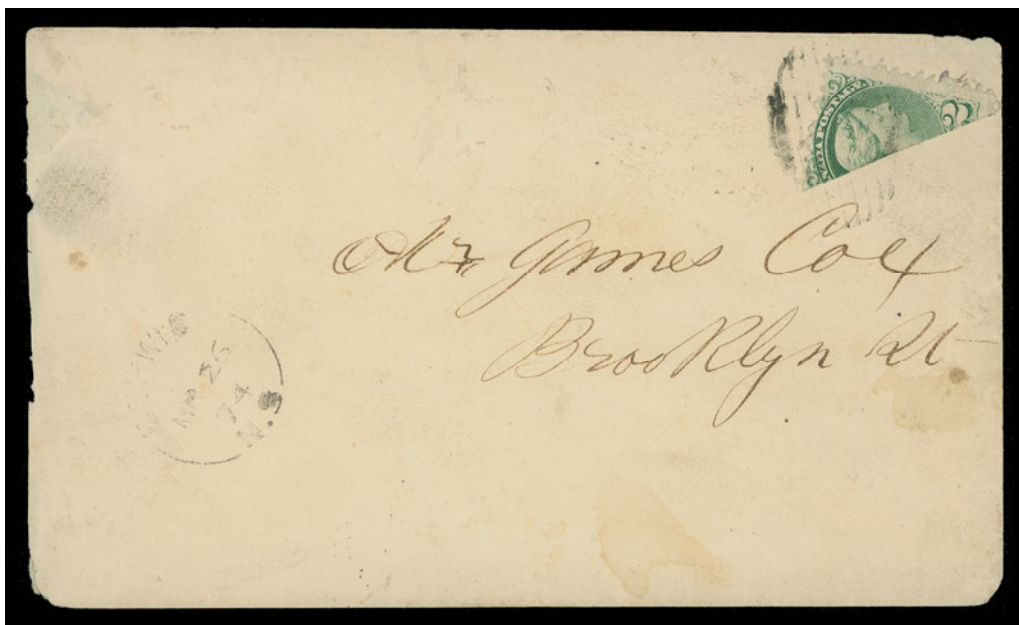 Mr James Cox
Brooklyn St
26
74
N.S